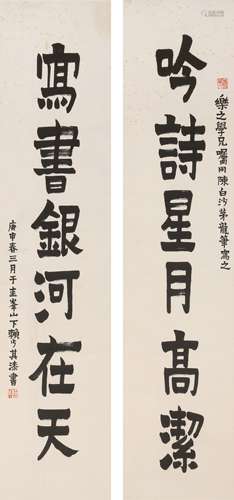 樂之學兄囑用陳白沙茅龍筆寫之
吟詩星月高潔
寫書銀河在天
庚申春三月于圭峯山下